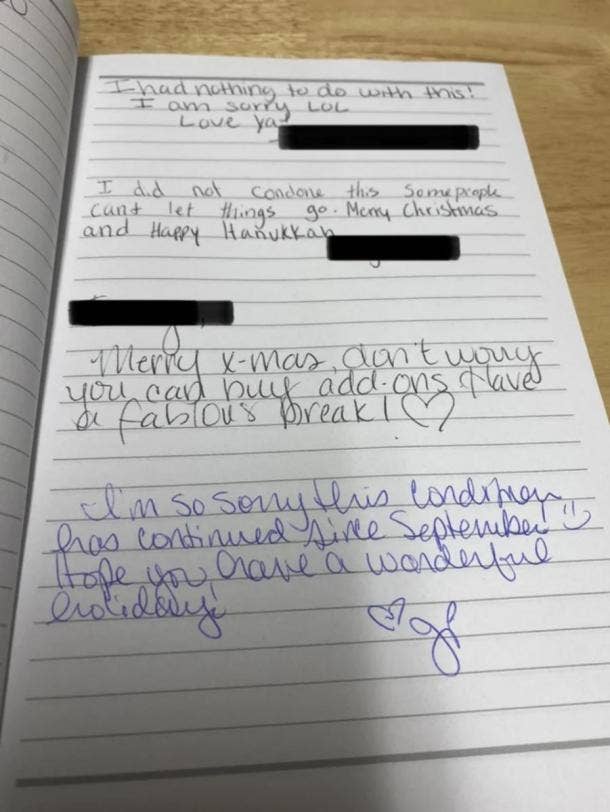 I had nothing to do with this!
I am sorry LOL
Love ya
I did not condone this some people
cant let things go. Merry Christmas
and Happy Hanukkah
Merry x-mas, don't worry
you can buy add-ons. Have
a fablous break! ♡
I'm so sorry this condition
has continued since September! :)
Hope you have a wonderful
holiday!
♡